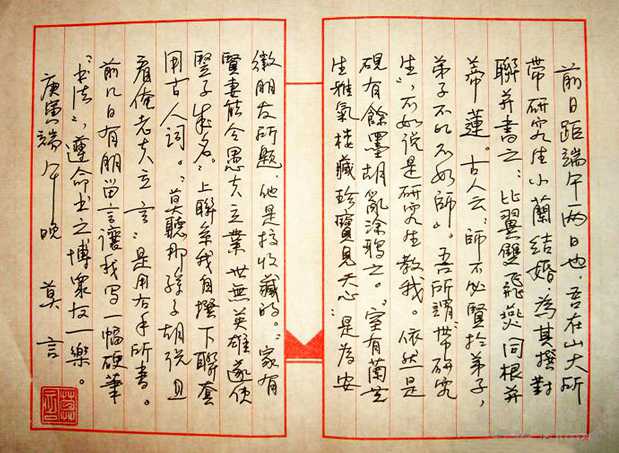 前日距端午两日也,吾在山大所
带研究生小蘭结婚,為其撰對
聯并書之:比翼雙飛燕,同根并
蒂蓮。古人云:師不必賢於弟子,
弟子不必不如師。吾所謂"带研究
生",不如说是研究生教我。依然是
硯有餘墨胡亂涂鴉之。"室有蘭芝
生雅氣,楼藏珍寶見天心",是為安
徽朋友所题,他是搞收藏的。"家有
賢妻能令愚夫立業,世無英雄遂使
竪子成名。"上聯系我自撰,下聯套
用古人詞。"莫聽那孫子胡说,且
看俺老夫立言"是用右手所書。
前几日有朋留言讓我写一幅硬筆
"书法",遵命书之,博衆友一樂。
庚寅端午晚 莫言